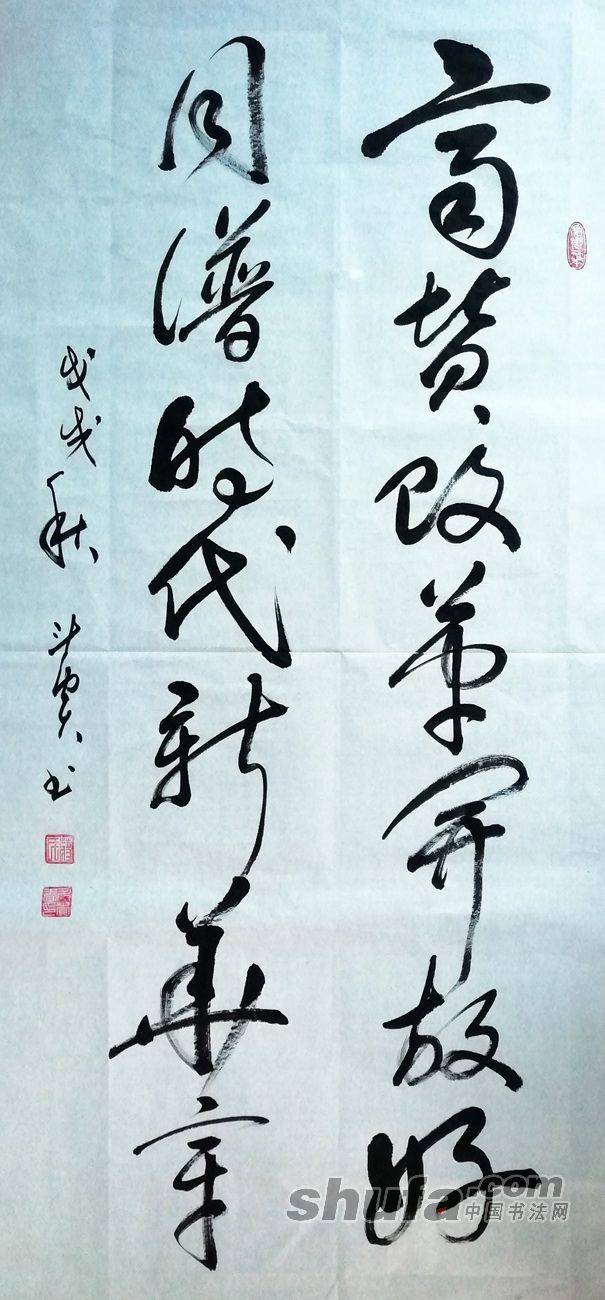 高赞改革开放好
同谱时代新华章
戊戌秋 斗贤书
shufa.com
中国书法网